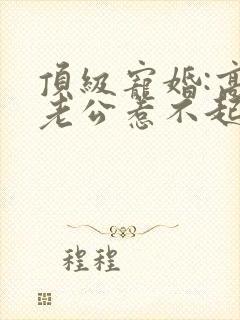 頂級寵婚:高
老公惹不起
程程